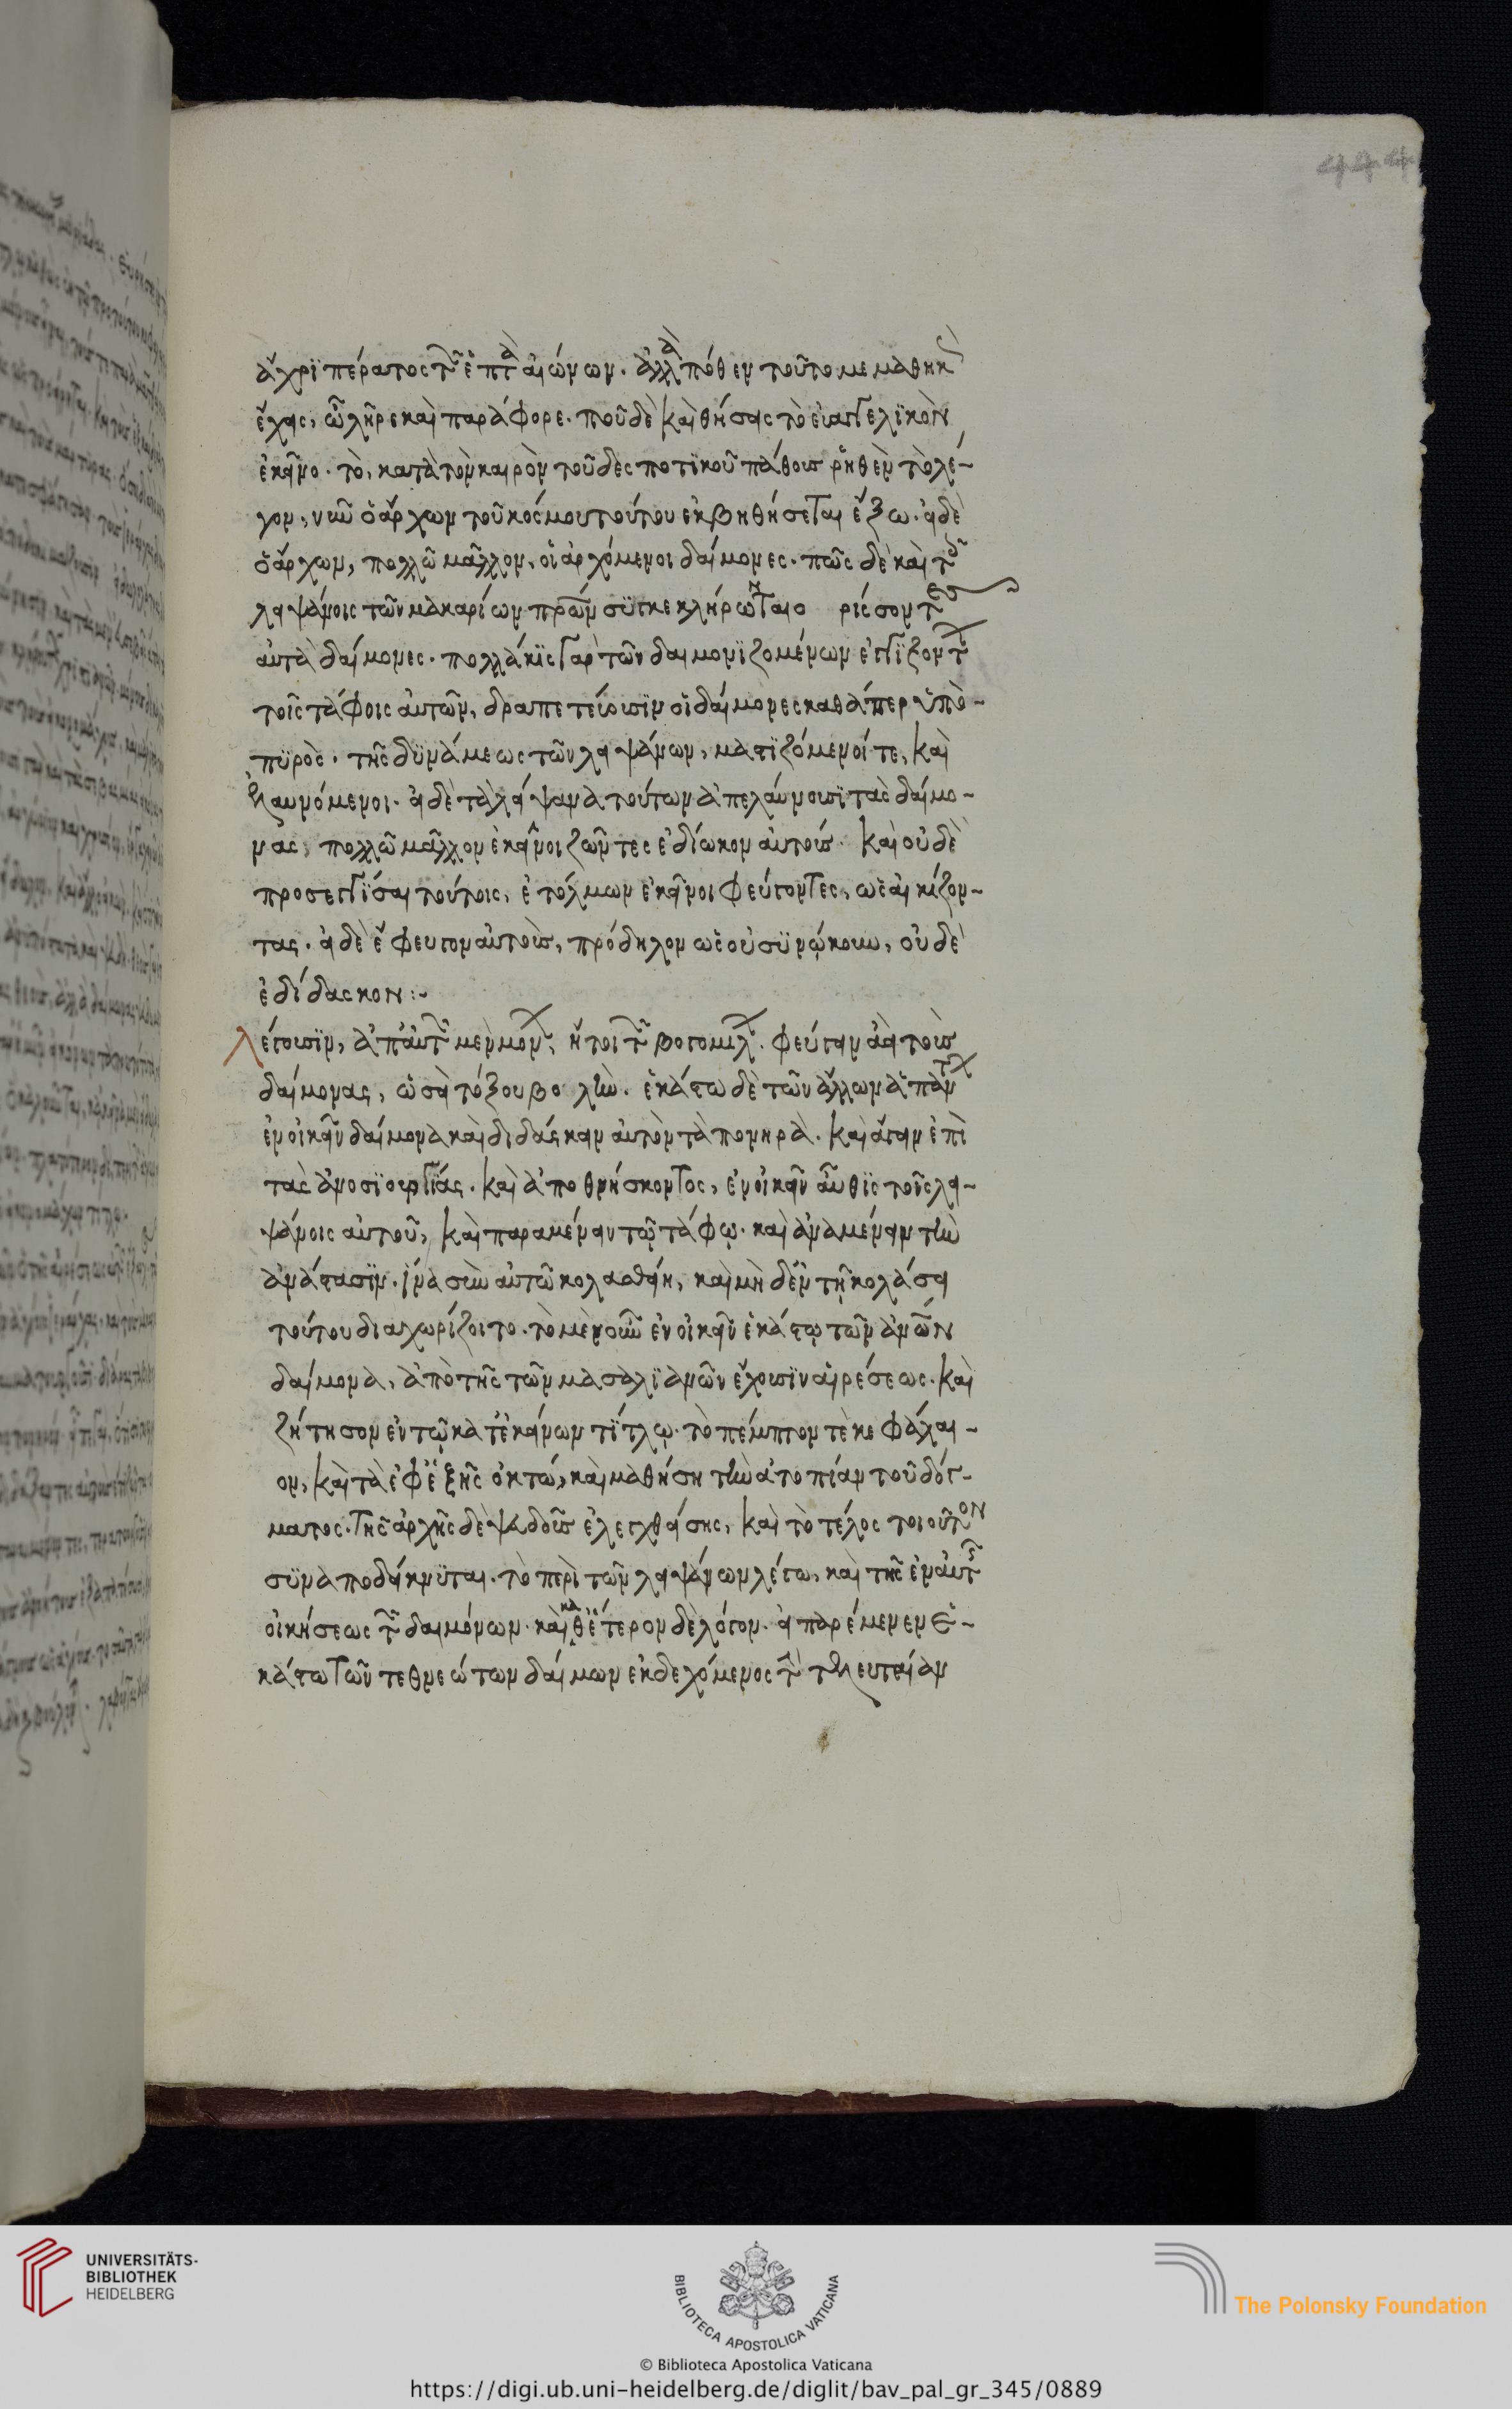 444
ἄχρι πέρατος τῶν ἑπτὰ αἰώνων. ἀλλὰ πόθεν τοῦτο μεμαθηκὼς
ἔχεις, ὦ λῆρε καὶ παράφορε. ποῦ δὲ καὶ θήσεις τὸ εὐαγγελικὸν
ἐκεῖνο. τὸ, κατὰ τὸν καιρὸν τοῦ δεσποτικοῦ πάθους ῥηθὲν τὸ λέ-
γον, νῦν ὁ ἄρχων τοῦ κόσμου τούτου ἐκβληθήσεται ἔξω. εἰ δὲ
ὁ ἄρχων, πολλῶ μᾶλλον, οἱ ἀρχόμενοι δαίμονες. πῶς δὲ καὶ τοῖς
λειψάνοις τῶν μακαρίων
αὐτὰ δαίμονες. πολλάκις γὰρ τῶν δαιμονιζομένων ἐγγιζόντων
τοῖς τάφοις αὐτῶν, δραπετεύουσιν οἱ δαίμονες καθάπερ ὑπὸ-
πυρὸς. τῆς δυνάμεως τῶν λειψάνων, μαστιζόμενοί τε, καὶ
ἐλαυνόμενοι. εἰ δὲ τὰ λείψανα τούτων ἀπελαύνουσι τοὺς δαίμο-
νας, πολλῶ μᾶλλον ἐκεῖνοι ζῶντες ἐδίωκον αὐτούς. καὶ οὐδὲ
προσεγγίσαι τούτοις, ἐτόλμων ἐκεῖνοι φεύγοντες, ὡς αἰκίζον-
τας. εἰ δὲ ἔφευγον αὐτοὺς, πρόδηλον ὡς οὐ συνώκουν, οὐδὲ
ἐδίδασκον:-
Λέγουσιν, ἀπ' αὐτῶν μὲν μόνων, ἤτοι τῶν βογομίλων. φεύγειν ἀεὶ τοὺς
δαίμονας, ὡσεὶ τόξου βολὴν. ἑκάστω δὲ τῶν ἄλλων ἁπάντων
ἐνοικεῖν δαίμονα καὶ διδάσκειν αὐτὸν τὰ πονηρὰ. καὶ ἄγειν ἐπὶ
τὰς ἀνοσιουργίας. καὶ ἀποθνήσκοντος, ἐνοικεῖν αὖθις τοῖς λει-
ψάνοις αὐτοῦ, καὶ παραμένειν τῷ τάφῳ. καὶ ἀναμένειν τὴν
ἀνάστασιν. ἵνα σὺν αὐτῶ κολασθείη, καὶ μὴ δ' ἐν τῇ κολάσει
τούτου διαχωρίζοιτο. τὸ μὲν οὖν ἐνοικεῖν ἑκάστῳ τῶν ἀνων
δαίμονα, ἀπὸ τῆς τῶν μασαλιανῶν ἔχουσιν αἱρέσεως. καὶ
ζήτησον ἐν τῷ κατ' ἐκείνων τίτλῳ. τὸ πέμπτον τὲ κεφάλαι-
ον, καὶ τὰ ἐφεξῆς ὀκτώ, καὶ μαθήση τὴν ἀτοπίαν τοῦ δόγ-
ματος. τῆς ἀρχῆς δὲ ψευδοῦς ἐλεγχθείσης, καὶ τὸ τέλος τοιοῦτον
συναποδείκνυται. τὸ περὶ τῶν λειψάνων λέγω, καὶ τῆς ἐν αὐτοῖς
οἰκήσεως τῶν δαιμόνων. καὶ καθ' ἕτερον δὲ λόγον. εἰ παρέμενεν ἑ-
κάστω τῶν τεθνεώτων δαίμων ἐκδεχόμενος τὴν τελευταίαν
UNIVERSITÄTS-
BIBLIOTHEK
HEIDELBERG
BIBLIOTECA APOSTOLICA VATICANA
The Polonsky Foundation
© Biblioteca Apostolica Vaticana
https://digi.ub.uni-heidelberg.de/diglit/bav_pal_gr_345/0889